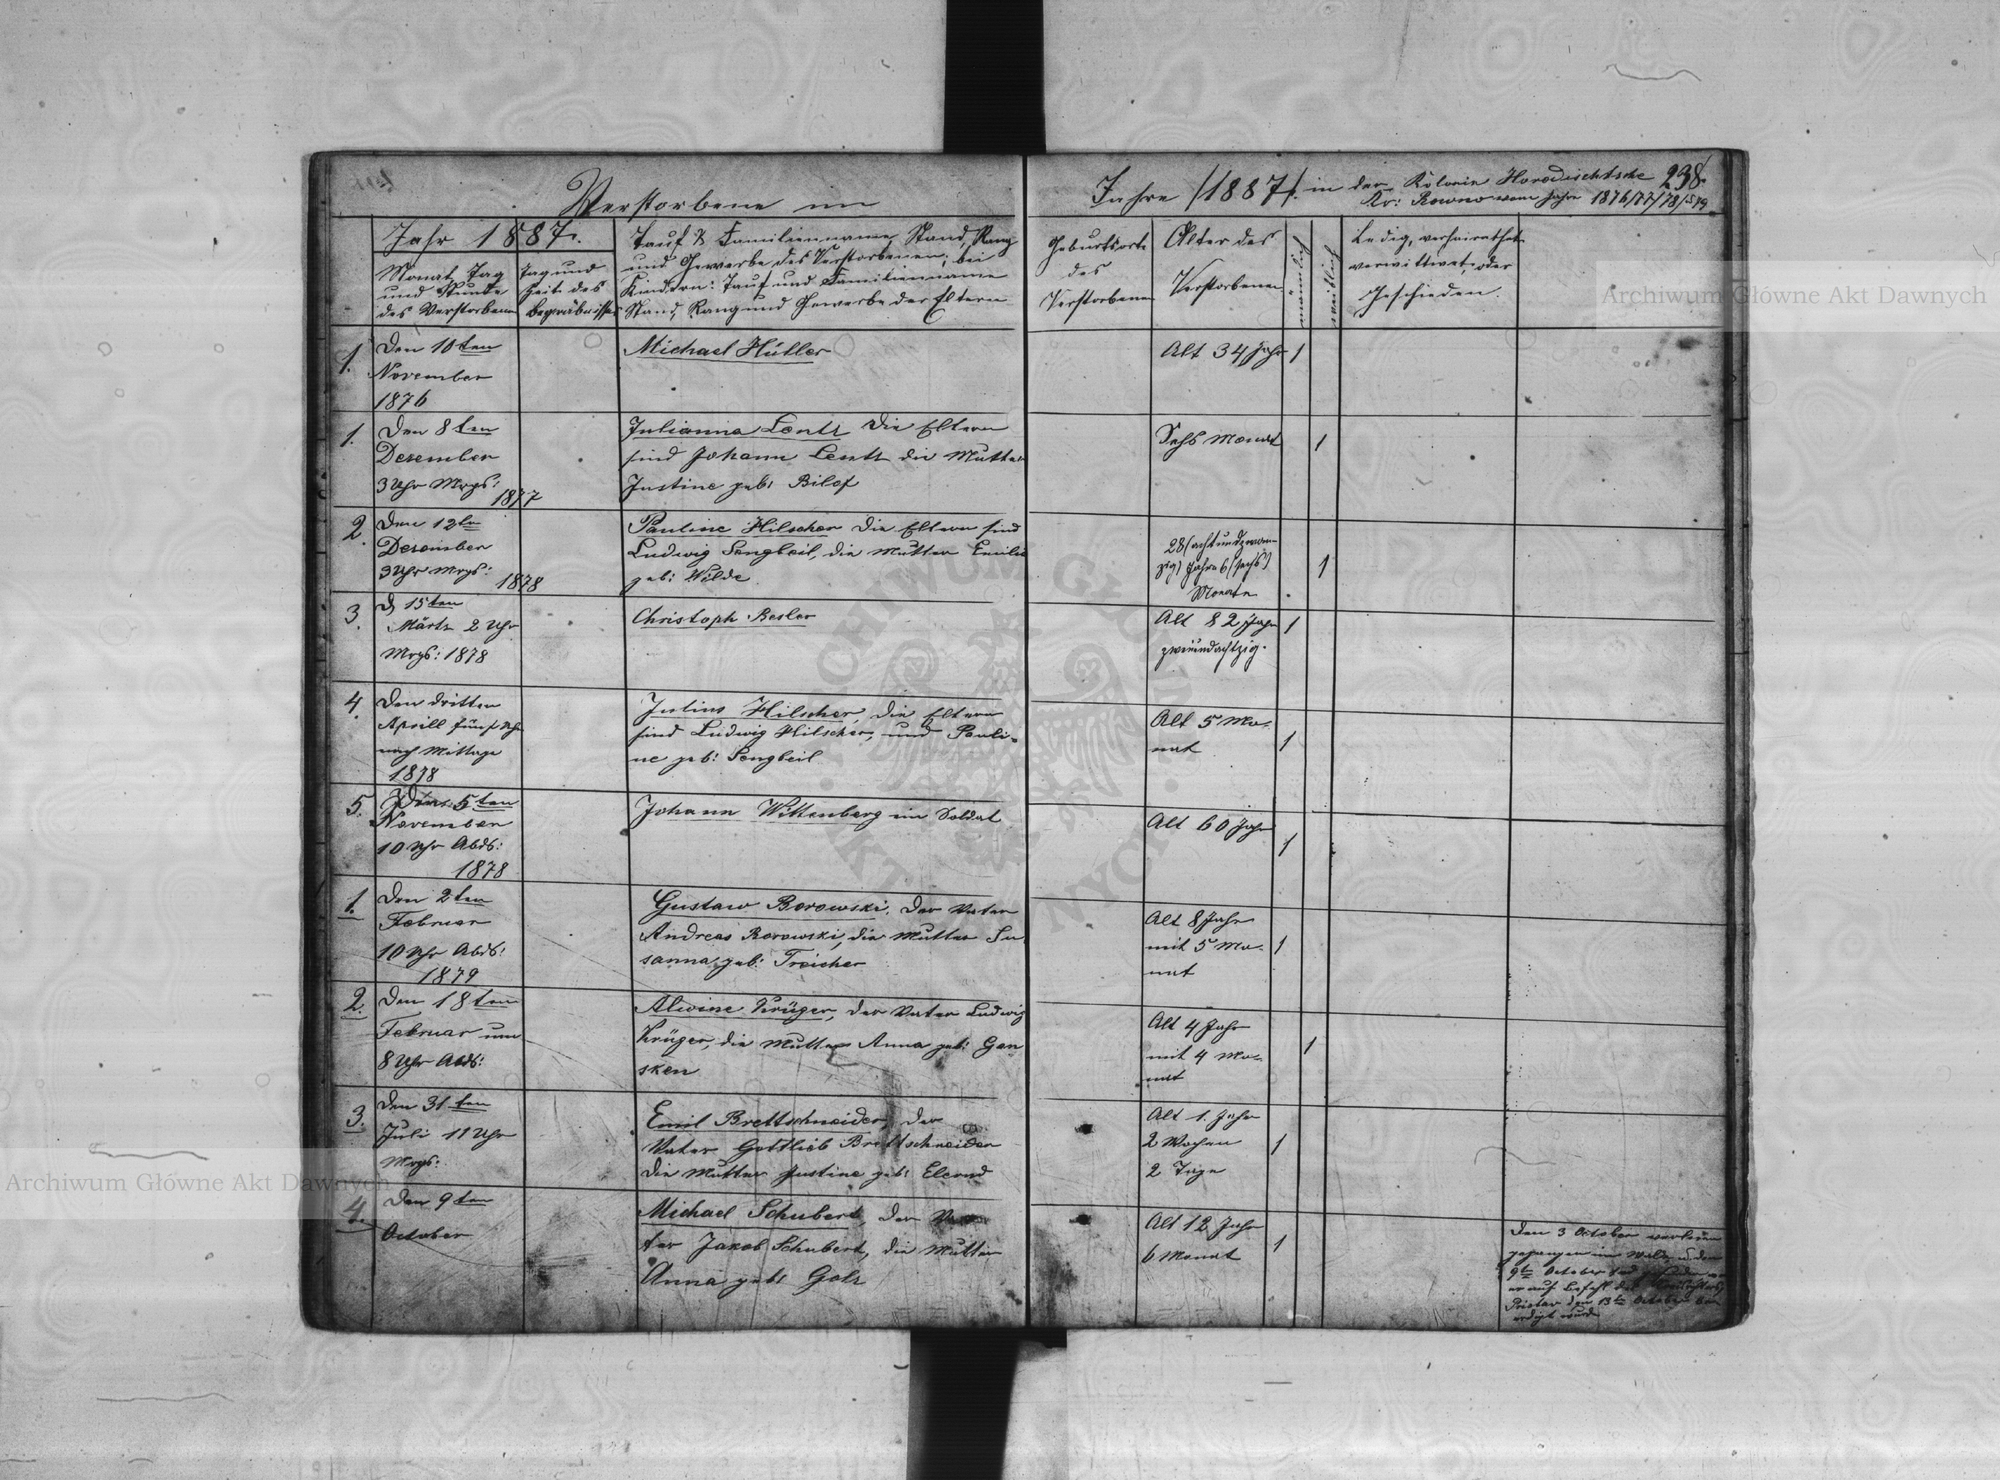 Verstorbene im
Jahre /1887/. in der Kolonie Horodischtsche
Kr: Rowno vom Jahre 1876/77/78/79.
238.
Jahr 1887.
Monat, Tag
und Stunde
des Verstorbenen
Tag und
Zeit des
Begräbnisses
Tauf & Familienname, Stand, Rang
und Gewerbe des Verstorbenen; bei
Kindern: Tauf und Familienname
Stand, Rang und Gewerbe der Eltern
Geburtsorte
des
Verstorbenen
Alter des
Verstorbenen
männlich
weiblich
Ledig, verheirathet
verwittwet, oder
Geschieden.
1.
Den 10ten
November
1876
Michael Hüller
Alt 34 Jahr
1
1.
Den 8ten
Desember
3 Uhr Mrgs:
1877
Julianna Lentz Die Eltern
sind Johann Lentz die Mutter
Justine geb: Bilof
Sechs Monat
1
2.
Den 12ten
Desember
3 Uhr Mrgs:
1878
Pauline Hilscher Die Eltern sind
Ludwig Sengbeil, die Mutter Emilie
geb: Wilde
28 (achtundzwan-
zig) Jahre 6 (sechs)
Monate
1
3.
d 15ten
Märtz 2 Uhr
Mrgs: 1878
Christoph Besler
Alt 82 Jahr
zweiundachtzig.
1
4.
Den dritten
Aprill fünf Uhr
nach Mittags
1878
Julius Hilscher, die Eltern
sind Ludwig Hilscher, und Pauli-
ne geb: Sengbeil
Alt 5 Mo-
nat
1
5.
Den 5ten
November
10 Uhr Abds:
1878
Johann Wittenberg ein Soldat
Alt 60 Jahr
1
1.
Den 2ten
Februar
10 Uhr Abds:
1879
Gustaw Borowski, der Vater
Andreas Borowski, die Mutter Su-
sanna geb: Treicher
Alt 8 Jahr
mit 5 Mo-
nat
1
2.
Den 18ten
Februar um
8 Uhr Abds:
Alwine Krüger, der Vater Ludwig
Krüger, die Mutter Anna geb: Gan
sken
Alt 4 Jahr
mit 4 Mo-
nat
1
3.
Den 31ten
Juli 11 Uhr
Mrgs:
Emil Brettschneider, der
Vater Gottlieb Brettschneider
die Mutter Justine geb:
Alt 1. Jahr
2 Wochen
2 Tage
1
4.
Den 9ten
October
Michael Schubert, der Va-
ter Jakob Schubert, die Mutter
Anna geb: Golz
Alt 12 Jahr
6 Monat
1
Den 3 October verloren
gegangen im Walde, den
9ten October tod gefunden
er auf Befehl des
Pristav den 13ten October be-
erdigt wurde
Archiwum Główne Akt Dawnych
Archiwum Główne Akt Dawnych
ARCHIWUM GŁÓWNE AKT DAWNYCH